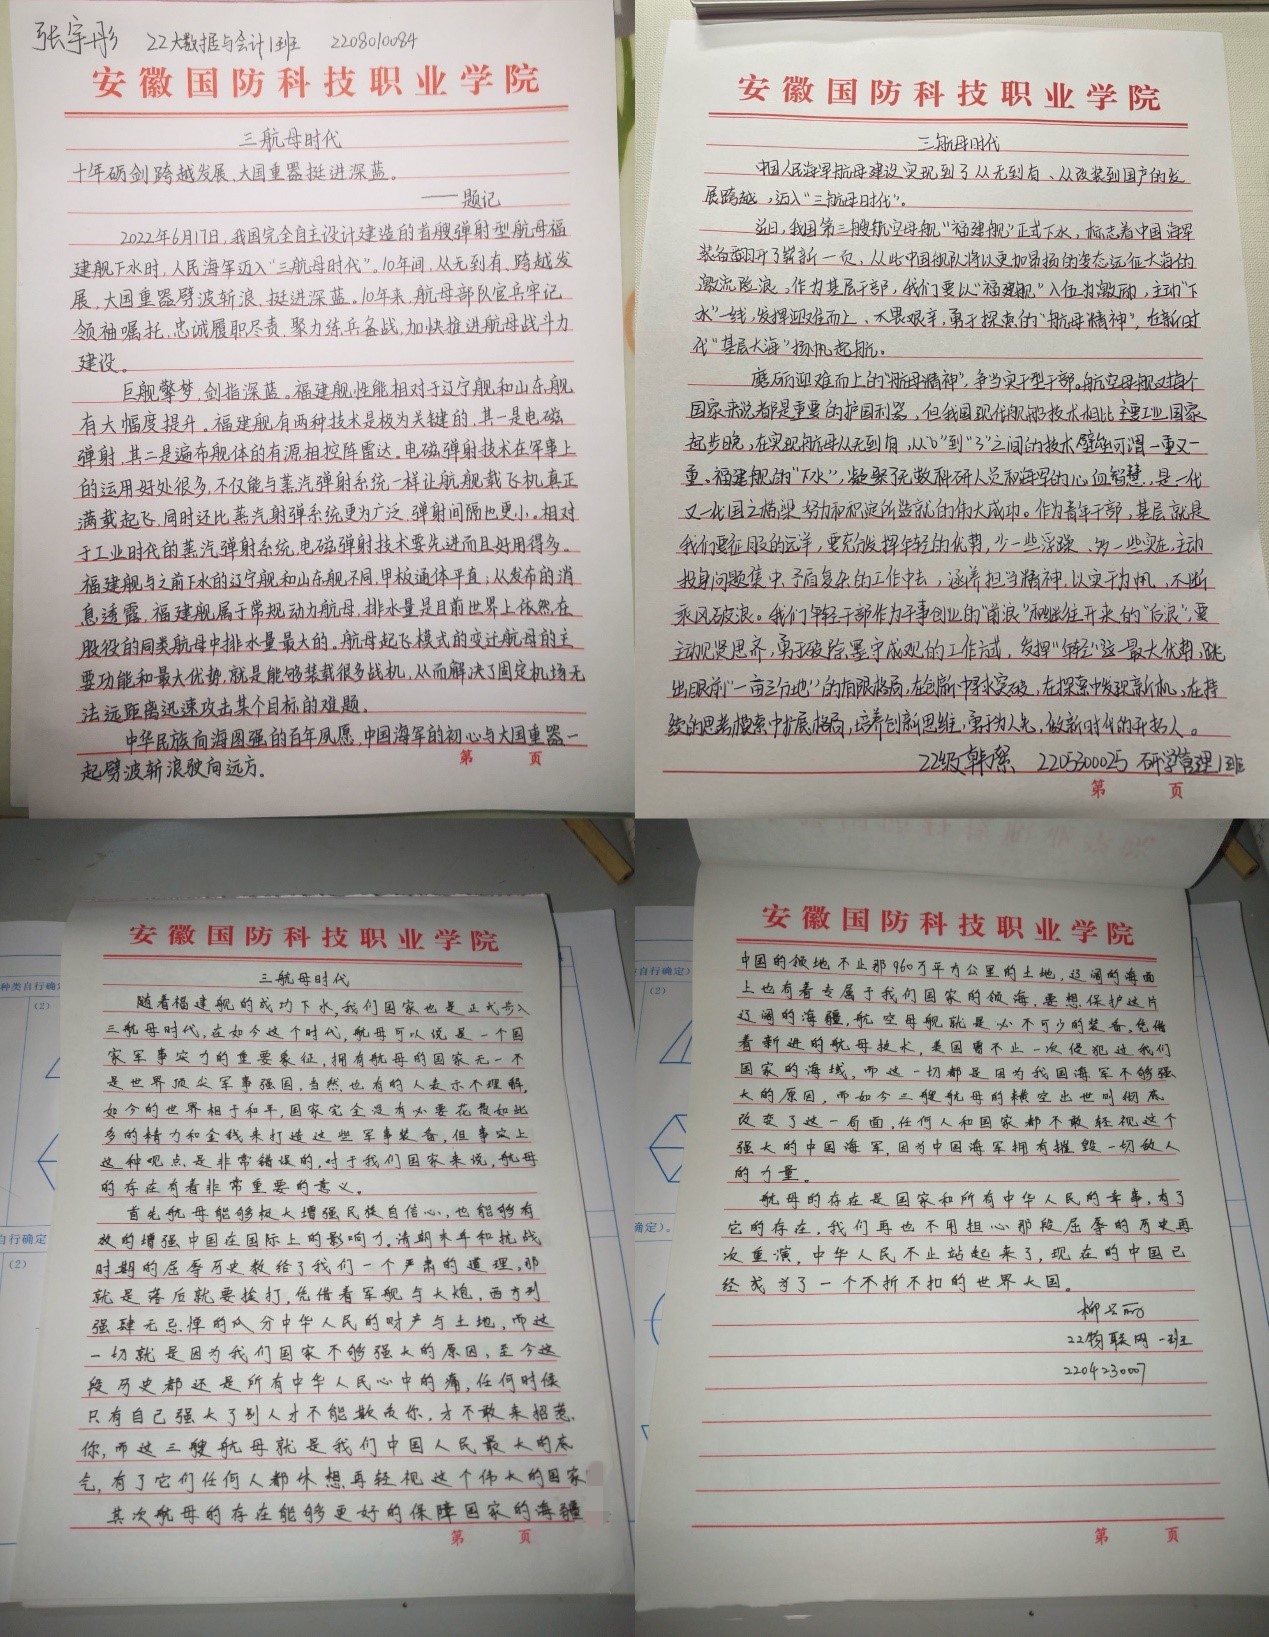 张宇彤 22大数据与会计1班 2208010084
安徽国防科技职业学院
三航母时代
十年砺剑跨越发展,大国重器挺进深蓝。
——题记
2022年6月17日,我国完全自主设计建造的首艘弹射型航母福
建舰下水时,人民海军迈入“三航母时代”。10年间,从无到有、跨越发
展,大国重器劈波斩浪、挺进深蓝。10年来,航母部队官兵牢记
领袖嘱托,忠诚履职尽责,聚力练兵备战,加快推进航母战斗力
建设。
巨舰擎梦,剑指深蓝。福建舰性能相对于辽宁舰和山东舰
有大幅度提升。福建舰有两种技术是极为关键的,其一是电磁
弹射,其二是遍布舰体的有源相控阵雷达。电磁弹射技术在军事上
的运用好处很多,不仅能与蒸汽弹射系统一样让航舰载飞机真正
满载起飞,同时还比蒸汽射弹系统更为广泛,弹射间隔也更小。相对
于工业时代的蒸汽弹射系统,电磁弹射技术要先进而且好用得多。
福建舰与之前下水的辽宁舰和山东舰不同,甲板通体平直;从发布的消
息透露,福建舰属于常规动力航母,排水量是目前世界上依然在
服役的同类航母中排水量最大的。航母起飞模式的变迁航母的主
要功能和最大优势,就是能够装载很多战机,从而解决了固定机场无
法远距离迅速攻击某个目标的难题。
中华民族向海图强的百年夙愿,中国海军的初心与大国重器一
起劈波斩浪驶向远方。
第 页
安徽国防科技职业学院
三航母时代
中国人民海军航母建设实现到了从无到有、从改装到国产的发
展跨越,迈入“三航母时代”。
近日,我国第三艘航空母舰“福建舰”正式下水,标志着中国海军
装备翻开了崭新一页,从此中国舰队将以更加昂扬的姿态远征大海的
激流险浪,作为基层干部,我们要以“福建舰”入伍为激励,主动“下
水”一线,发挥迎难而上、不畏艰辛,勇于探索的“航母精神”,在新时
代“基层大海”扬帆起航。
磨砺迎难而上的“航母精神”,争当实干型干部。航空母舰对每个
国家来说都是重要的护国利器,但我国现代舰船技术相比主要工业国家
起步晚,在实现航母从无到有,从“0”到“3”之间的技术壁垒可谓一重又一
重。福建舰的“下水”,凝聚了无数科研人员和海军的心血智慧,是一代
又一代国之栋梁努力和积淀所造就的伟大成功。作为青年干部,基层就是
我们要征服的远洋,要充分发挥年轻的优势,少一些浮躁、多一些实在,主动
投身问题集中、矛盾复杂的工作中去,涵养担当精神,以实干为帆,不断
乘风破浪。我们年轻干部作为干事创业的“前浪”和继往开来的“后浪”,要
主动见贤思齐,勇于破除墨守成规的工作方式,发挥“年轻”这一最大优势,跳
出眼前“一亩三分地”的有限格局,在创新中寻求突破,在探索中发现新机,在持
续的思考摸索中扩展格局,培养创新思维,勇于为人先,做新时代的开拓人。
22级韩 2205300025 研学管理1班
第 页
安徽国防科技职业学院
三航母时代
随着福建舰的成功下水,我们国家也是正式步入
三航母时代,在如今这个时代,航母可以说是一个国
家军事实力的重要象征,拥有航母的国家无一不
是世界顶尖军事强国,当然也有的人表示不理解,
如今的世界相于和平,国家完全没有必要花费如此
多的精力和金钱来打造这些军事装备,但事实上
这种观点是非常错误的,对于我们国家来说,航母
的存在有着非常重要的意义。
首先航母能够极大增强民族自信心,也能够有
效的增强中国在国际上的影响力,清朝末年和抗战
时期的屈辱历史教给了我们一个严肃的道理,那
就是落后就要挨打,凭借着军舰与大炮,西方列
强肆无忌惮的瓜分中华人民的财产与土地,而这
一切就是因为我们国家不够强大的原因,至今这
段历史都还是所有中华人民心中的痛,任何时候
只有自己强大了别人才不能欺负你,才不敢来招惹
你,而这三艘航母就是我们中国人民最大的底
气,有了它们任何人都休想再轻视这个伟大的国家
其次航母的存在能够更好的保障国家的海疆
第 页
安徽国防科技职业学院
中国的领地不止那960万平方公里的土地,辽阔的海面
上也有着专属于我们国家的领海,要想保护这片
辽阔的海疆,航空母舰就是必不可少的装备,凭借
着新进的航母技术,美国曾不止一次侵犯过我们
国家的海域,而这一切都是因为我国海军不够强
大的原因,而如今三艘航母的横空出世则彻底
改变了这一局面,任何人和国家都不敢轻视这个
强大的中国海军,因为中国海军拥有摧毁一切敌人
的力量。
航母的存在是国家和所有中华人民的幸事,有了
它的存在,我们再也不用担心那段屈辱的历史再
次重演,中华人民不止站起来了,现在的中国已
经成为了一个不折不扣的世界大国。
22物联网一班
2204230007
第 页
种类自行确定)
(2)
自行确定)
(2)
自行确定)
(2)
确定)。
(2)